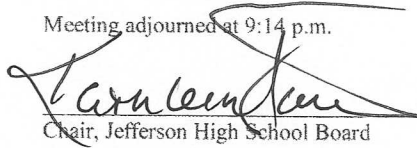 Meeting adjourned at 9:14 p.m.
Chair, Jefferson High School Board